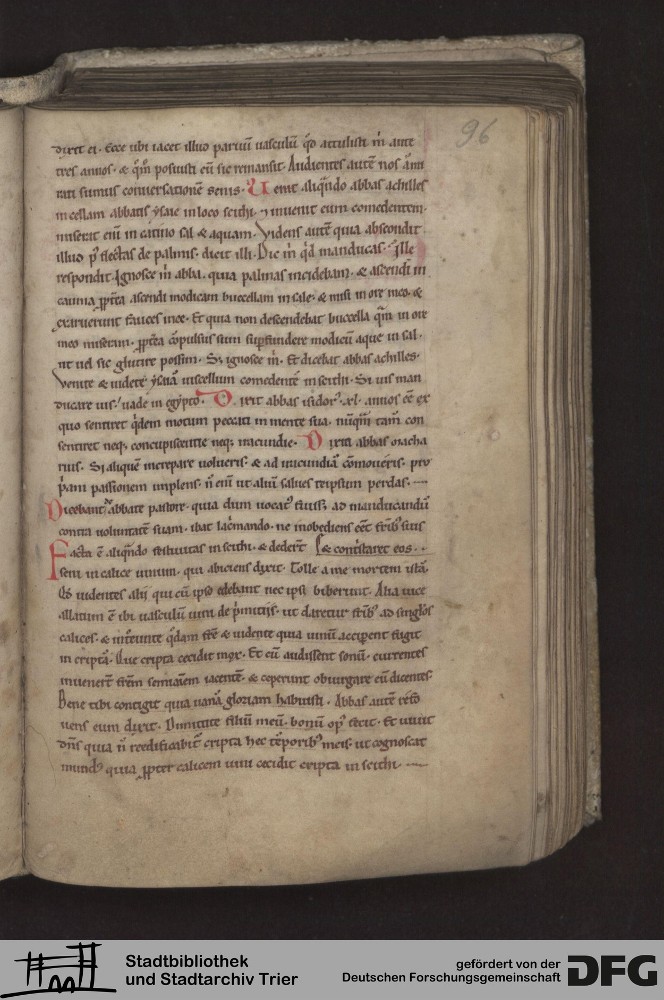 96
dixit ei. Ecce ubi iacet illud paruū uasculū qd̄ attulisti m̄ ante
tres annos. & qm̄ posuisti eū sic remansit. Audientes autē nos
rati sumus conuersationē senis. Uenit aliqn̄do abbas achilles
in cellam abbatis ysaie in loco scithi. ⁊ inuenit eum comedentem.
miserit eni in catino sal & aquam. Videns autē quia abscondit
illud p̄ flectas de palmis. dicit illi. Dic m̄ qd̄ manducas. Ille
respondit. Ignosce m̄ abba. quia palmas incidebam. & ascendi in
cauma ascendi modicam buccellam in sale. & misi in ore meo. &
exaruerunt fauces mee. Et quia non descendebat buccella qm̄ in ore
meo miseram. cōpulsus sum supfundere modicū aque in sal.
ut uel sic glutire possim. S; ignosce m̄. Et dicebat abbas achilles.
Venite & uidete ysaiā comedentē in scithi. Si uis man
ducare ius. uade in egypto. Dixit abbas isidor. xl. annos eē ex
quo sentiret qidem motum peccati in mente sua. nūqm̄ tam̄ con
sentiret neq; concupiscentie neq; iracundie. Dixit abbas macha
rius. Si aliquē increpare uolueris. & ad iracundiā cōmoueris. pro
pam passionem implens. n̄ eni ut aliū salues teipsum perdas.
Dicebant de abbate pastore. quia dum uocat fuiss; ad manducandū
contra uoluntatē suam. ibat lacmando. ne inobediens eēt frib suis
Facta ē aliqn̄do festiuitas in scithi. & dederūt & contstaret eos.
seni in calice uinum. qui abiciens dixit. Tolle a me mortem istā.
Qd̄ uidentes alii qui cū ipso edebant nec ipsi biberunt. Alia uice
allatum ē ibi uasculū uini de pmitiis. ut daretur frib ad singlos
calices. & intoeunte qdam fre & uidente quia uinū accipent fugit
in cripta. Que cripta cecidit mox. Et cū audissent sonū. currentes
inuenert frem semiuiuum iacentē. & ceperunt obiurgare eū dicentes.
Bene tibi contigit quia uanā gloriam habuisti. Abbas autē
uens eum dixit. Dimittite filiū meū. bonū op fecit. Et uiuit
dn̄s quia n̄ reedificabit cripta hec tēporib meis. ut cognoscat
mund quia ppter calicem uini cecidit cripta in scithi.
Stadtbibliothek
und Stadtarchiv Trier
gefördert von der
Deutschen Forschungsgemeinschaft
DFG